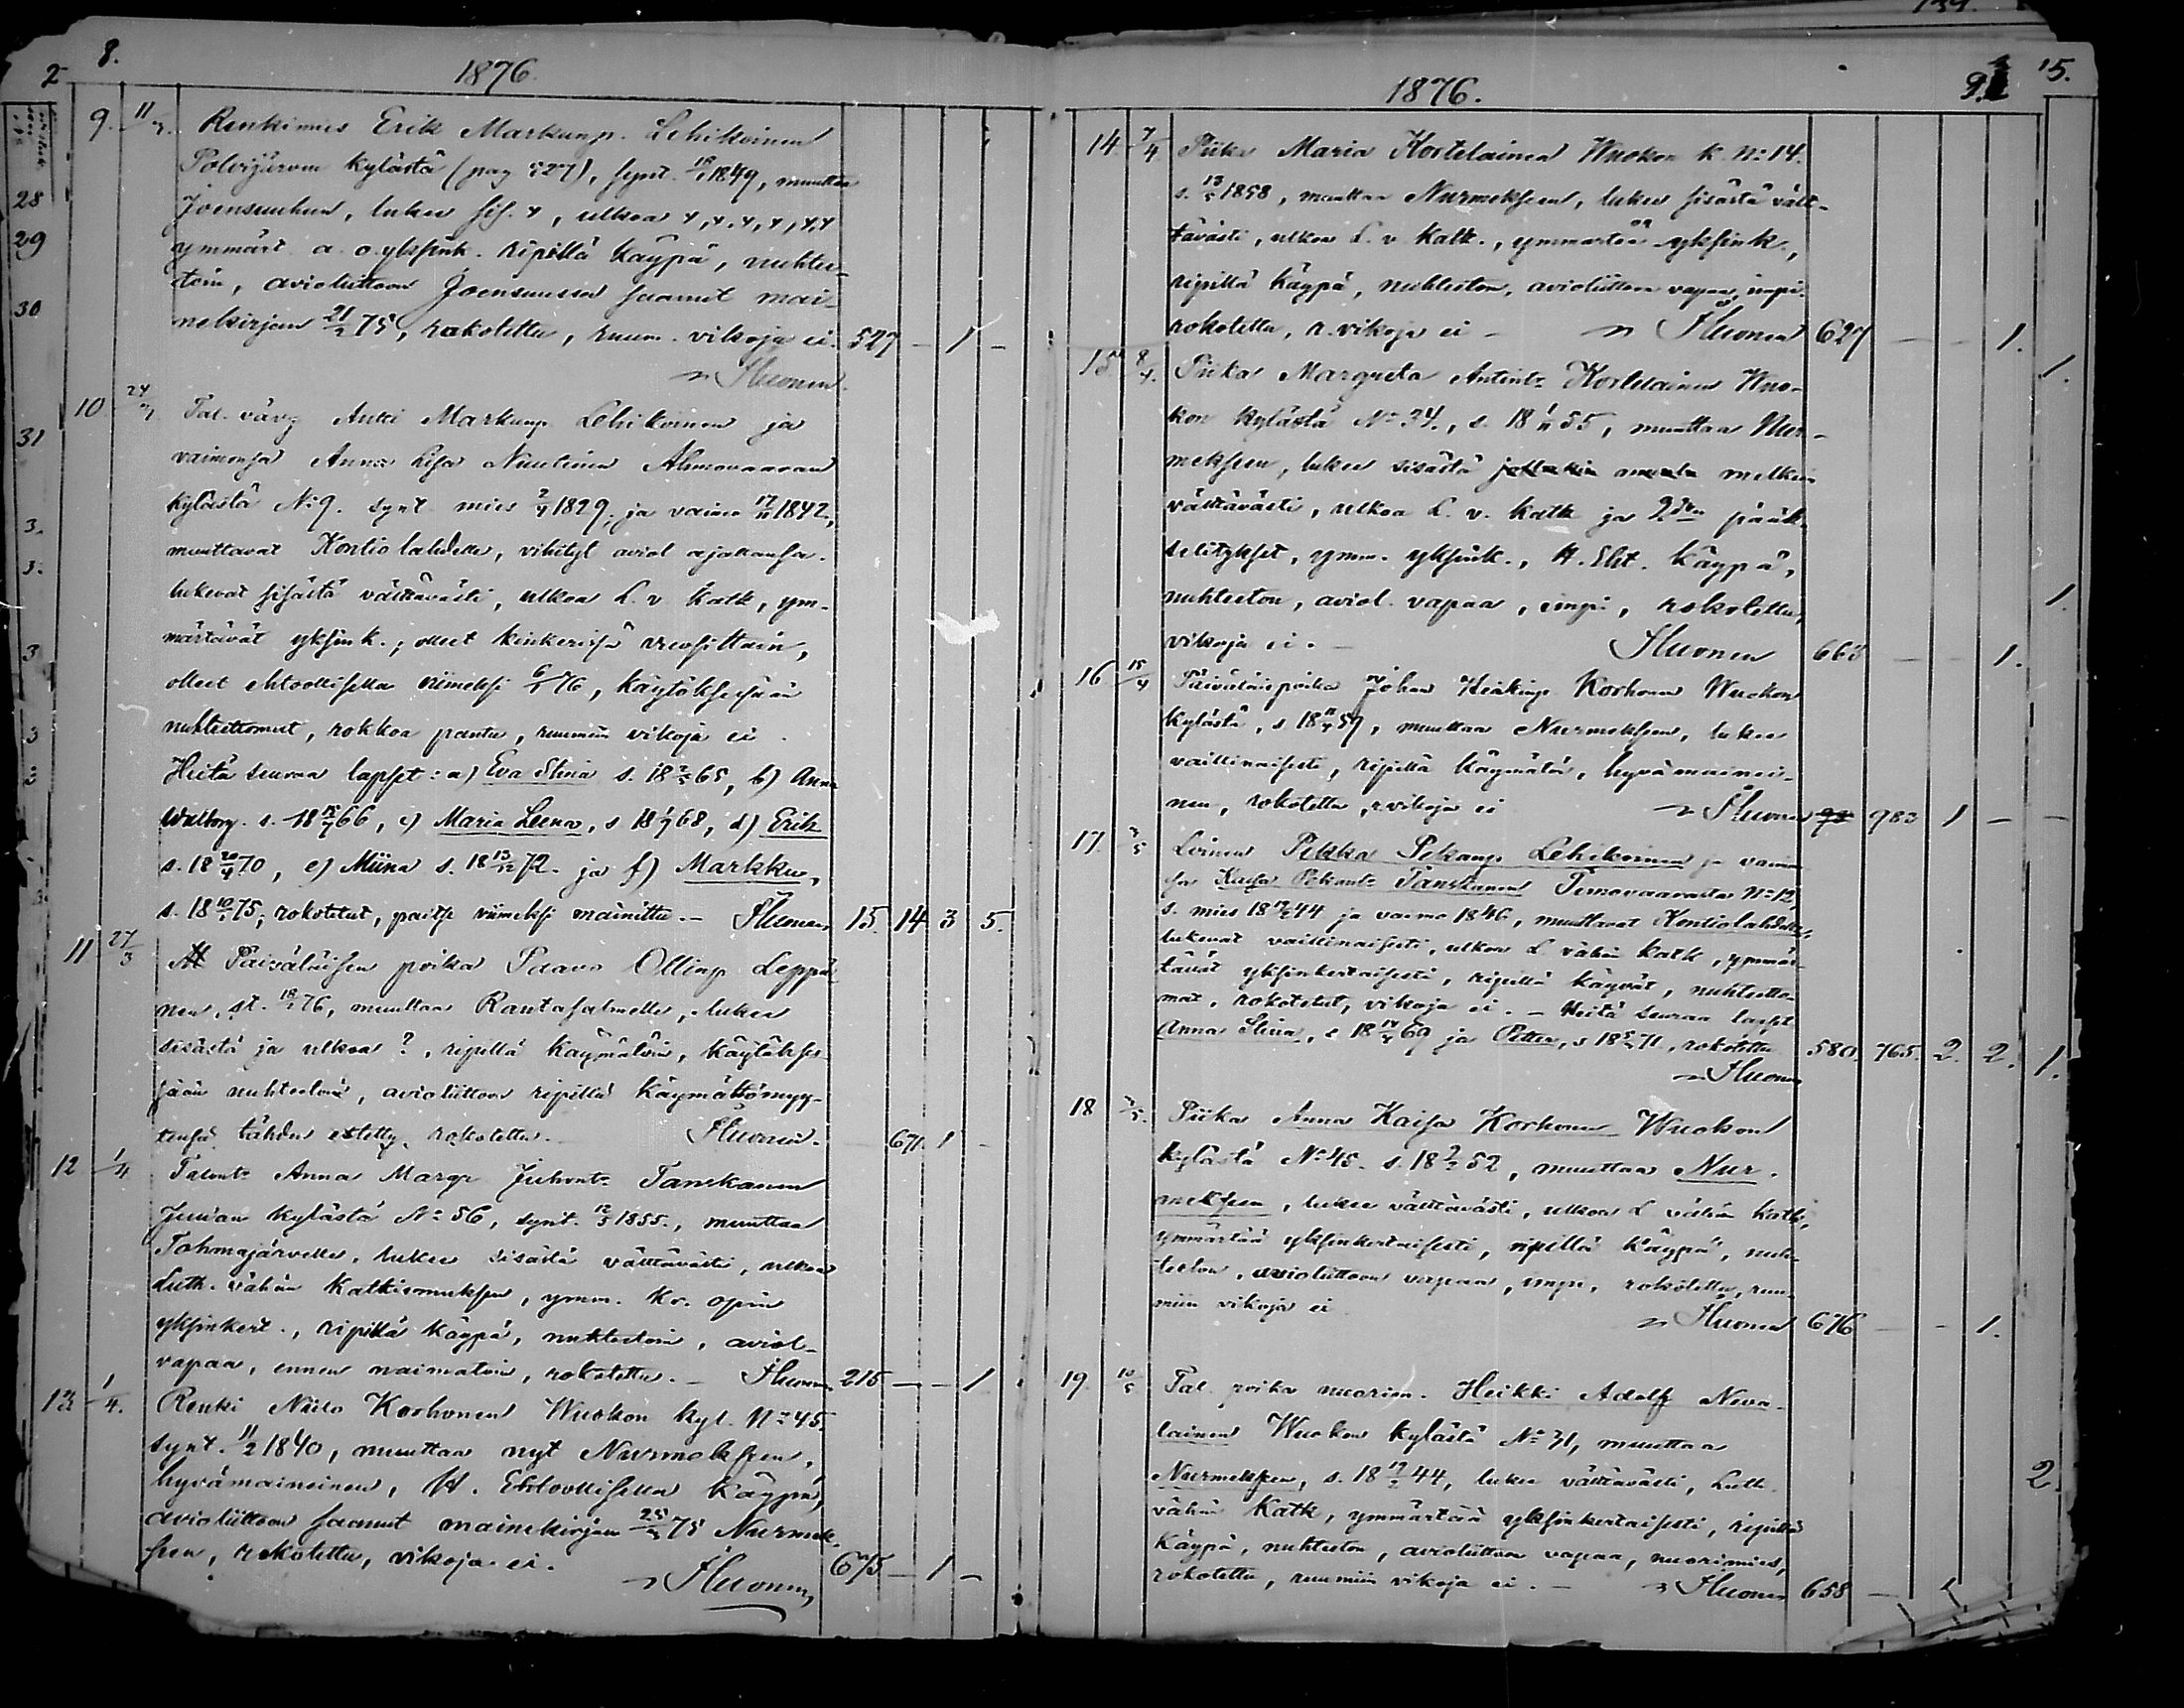 8.
1876
9. 11/3. Renkimies Erik Markunp. Lehikoinen
Polvijärven kylästä (pag 527), synt. 18/1 1849, muuttaa
Joensuuhun, lukee sis. 4, ulkoa 4, 4, 4, 4, 4, 4
ymmärt a. o. yksink. ripillä käypä, nuhtee-
toin, avioliittoon Joensuussa saanut mai-
nekirjan 21/2 75, rokotettu, ruum. vikoja ei. 527 — 1 —
Ihuonen.
10 24/3 Tal. väv Antti Markunp Lehikoinen ja
vaimonsa Anna Lisa Nuutinen Ahmovaaran
kylästä No 9. synt mies 2/4 1829, ja vaimo 17/11 1842,
muuttavat Kontiolahdelle, vihityt aviol ajallansa.
lukevat sisästä välttävästi, ulkoa L. v Katk, ym-
märtävät yksink.; olleet kinkerissä vuosittain,
olleet ehtoollisella viimeksi 6/1 76, käytöksessään
nuhteettomat, rokkoa pantu, ruumiin vikoja ei.
Heitä seuraa lapset: a) Eva Stina s. 18 65, b) Anna
Walborg. s. 18 66, c) Maria Leena, s 18 1/7 68, d) Erik
s. 18 20/4 70, e) Miina s. 18 13/12 72. ja f) Markku,
s. 18 10/1 75; rokotetut, paitsi viimeksi mainittu. — Ihuonen 15. 14 3 5.
11 27/3 Päiväläisen poika Paavo Ollinp Leppä-
nen, st. 76, muuttaa Rantasalmelle, lukee
sisästä ja ulkoa ?, ripillä käymätöin, käytökses-
sään nuhteetoin, avioliittoon ripillä käymättömyy-
tensä tähden estetty, rokotettu. Ihuonen. 671. 1 —
12 1/4 Talont. Anna Margr Juhont. Tanskanen
Juuan kylästä No 56, synt. 12/5 1855., muuttaa
Tohmajärvelle, lukee sisästä välttävästi, ulkoa
Luth. vähän Katkismuksen, ymm. Kr. opin
yksinkert., ripillä käypä, nuhteetoin, aviol-
vapaa, ennen naimatoin, rokotettu. — Ihuonen 215 — — 1
13 1/4. Renki Niilo Korhonen Wuokon kyl. No 45.
synt. 11/2 1840, muuttaa nyt Nurmekseen,
hyvämaineinen, H. Ehtoollisella käypä,
avioliittoon saanut mainekirjan 25/3 75 Nurmek-
seen, rokotettu, vikoja ei. 675 — 1 —
Ihuonen
1876.
15.
14. 7/4 Piika Maria Kortelainen Wuokon k. No 14.
s. 13/5 1858, muuttaa Nurmekseen, lukee sisästä vält-
tävästi, ulkoa L. v Katk., ymmärtää yksink.,
ripillä käypä, nuhteeton, avioliittoon vapaa, impi.
rokotettu, r. vikoja ei — Ihuonen 627 — — 1.
15. 8/4. Piika Margreta Antint. Kortelainen Wuo-
kon kylästä No 34., s. 18 1/11 55, muuttaa Nur-
mekseen, lukee sisästä melkein
välttävästi, ulkoa L. v. Katk ja 2 pääk.
selitykset, ymm. yksink., H. Eht. käypä,
nuhteeton, aviol. vapaa, impi, rokotettu,
vikoja ei. — Ihuonen 663 — — 1.
16 15/4 Päiväläis poika Johan Heikinp. Korhonen Wuokon
kylästä, s 18 57, muuttaa Nurmekseen, lukee
vaillinaisesti, ripillä käymätön, hyvämainei-
nen, rokotettu, r. vikoja ei Ihuonen 983 1 — —
17. Loinen Pekka Pekanp. Lehikoinen ja vaimon-
sa Kaisa Pekant. Tanskanen Timovaarasta No 12,
s. mies 18 44 ja vaimo 1846, muuttavat Kontiolahdelle,
lukevat vaillinaisesti, ulkoa L. vähän katk, ymmär-
tävät yksinkertaisesti, ripillä käyvät, nuhteetto-
mat, rokotetut, vikoja ei. — Heitä seuraa lapset
Anna Stina, s 18 69 ja Petter, s 18 71, rokotettu 580. 765. 2. 2. 1.
Ihuonen
18 Piika Anna Kaisa Korhonen Wuokon
kylästä No 45. s. 18 52, muuttaa Nur-
mekseen, lukee välttävästi, ulkoa L vähän katk,
ymmärtää yksinkertaisesti, ripillä käypä, nuh-
teeton, avioliittoon vapaa, impi, rokotettu, ruu-
miin vikoja ei Ihuonen 676 — — 1.
19. 10/5 Tal. poika nuorim. Heikki Adolf Neva-
lainen Wuokon kylästä No 31, muuttaa
Nurmekseen, s. 18 17/2 44, lukee välttävästi, Luth.
vähän Katk, ymmärtää yksinkertaisesti, ripillä
käypä, nuhteeton, avioliittoon vapaa, nuorimies,
rokotettu, ruumiin vikoja ei. — Ihuonen 658 —